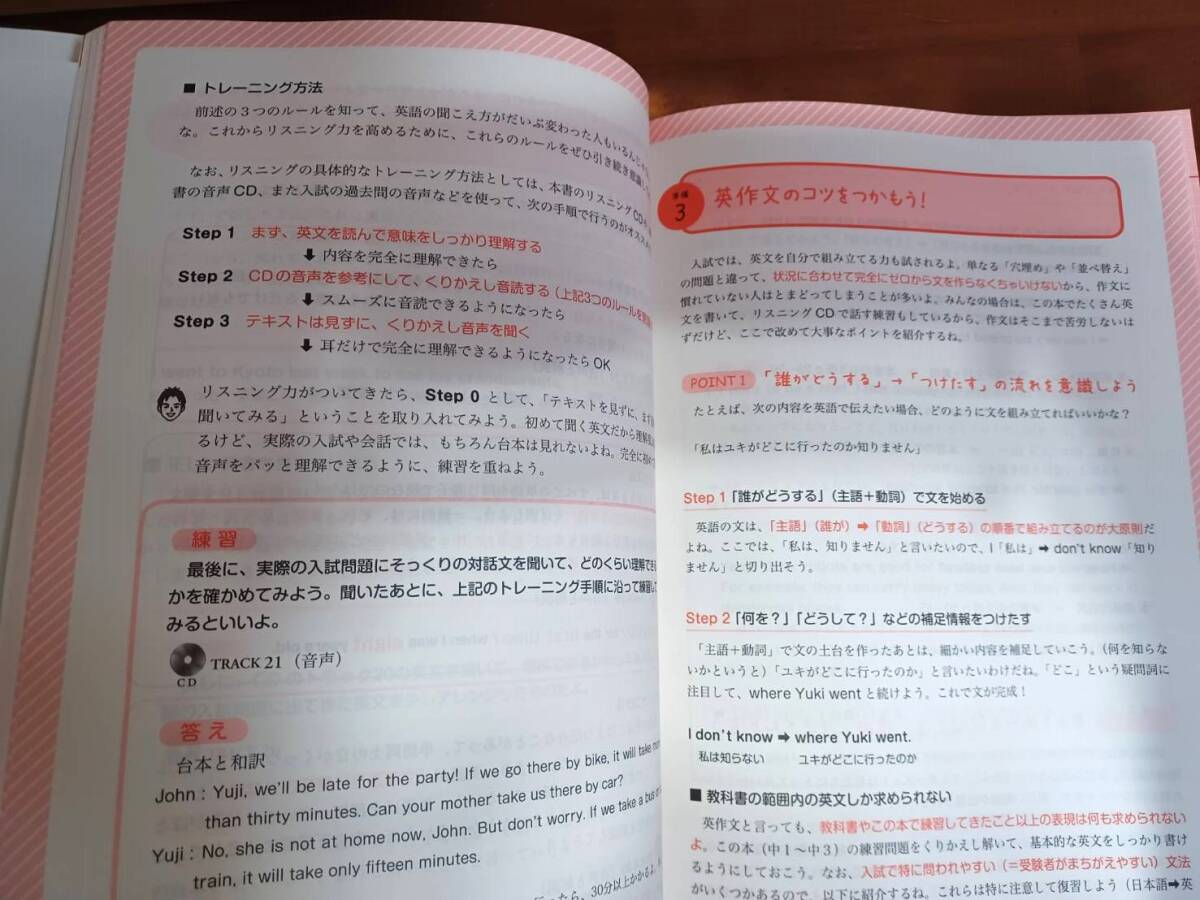 ■ トレーニング方法
前述の3つのルールを知って、英語の聞こえ方がだいぶ変わった人もいるんじゃ
な。これからリスニング力を高めるために、これらのルールをぜひ引き続き意識
なお、リスニングの具体的なトレーニング方法としては、本書のリスニングCD
書の音声CD、また入試の過去問の音声などを使って、次の手順で行うのがオスス
Step 1 まず、英文を読んで意味をしっかり理解する
⬇ 内容を完全に理解できたら
Step 2 CDの音声を参考にして、くりかえし音読する(上記3つのルールを意識
⬇ スムーズに音読できるようになったら
Step 3 テキストは見ずに、くりかえし音声を聞く
⬇ 耳だけで完全に理解できるようになったらOK
リスニング力がついてきたら、Step 0 として、「テキストを見ずに、まず
聞いてみる」ということを取り入れてみよう。初めて聞く英文だから理解
るけど、実際の入試や会話では、もちろん台本は見れないよね。完全に初め
音声をパッと理解できるように、練習を重ねよう。
練習
最後に、実際の入試問題にそっくりの対話文を聞いて、どのくらい理解でき
かを確かめてみよう。聞いたあとに、上記のトレーニング手順に沿って練習して
みるといいよ。
CD
TRACK 21(音声)
答え
台本と和訳
John : Yuji, we'll be late for the party! If we go there by bike, it will take more
than thirty minutes. Can your mother take us there by car?
Yuji : No, she is not at home now, John. But don't worry. If we take a bus or
train, it will take only fifteen minutes.
たら、30分以上かかるよ
準備
3
英作文のコツをつかもう!
入試では、英文を自分で組み立てる力も試されるよ。単なる「穴埋め」や「並べ替え」
の問題と違って、状況に合わせて完全にゼロから文を作らなくちゃいけないから、作文に
慣れていない人はとまどってしまうことが多いよ。みんなの場合は、この本でたくさん英
文を書いて、リスニングCDで話す練習もしているから、作文はそこまで苦労しないは
ずだけど、ここで改めて大事なポイントを紹介するね。
POINT 1 「誰がどうする」→「つけたす」の流れを意識しよう
たとえば、次の内容を英語で伝えたい場合、どのように文を組み立てればいいかな?
「私はユキがどこに行ったのか知りません」
Step 1「誰がどうする」(主語+動詞)で文を始める
英語の文は、「主語」(誰が)➡「動詞」(どうする)の順番で組み立てるのが大原則だ
よね。ここでは、「私は、知りません」と言いたいので、I「私は」➡ don't know「知り
ません」と切り出そう。
Step 2「何を?」「どうして?」などの補足情報をつけたす
「主語+動詞」で文の土台を作ったあとは、細かい内容を補足していこう。(何を知らな
いかというと)「ユキがどこに行ったのか」と言いたいわけだね。「どこ」という疑問詞に
注目して、where Yuki went と続けよう。これで文が完成!
I don't know ➡ where Yuki went.
私は知らない ユキがどこに行ったのか
■ 教科書の範囲内の英文しか求められない
英作文と言っても、教科書やこの本で練習してきたこと以上の表現は何も求められない
よ。この本(中1〜中3)の練習問題をくりかえし解いて、基本的な英文をしっかり書け
るようにしておこう。なお、入試で特に問われやすい(=受験者がまちがえやすい)文法
がいくつかあるので、以下に紹介するね。これらは特に注意して復習しよう(日本語➡英